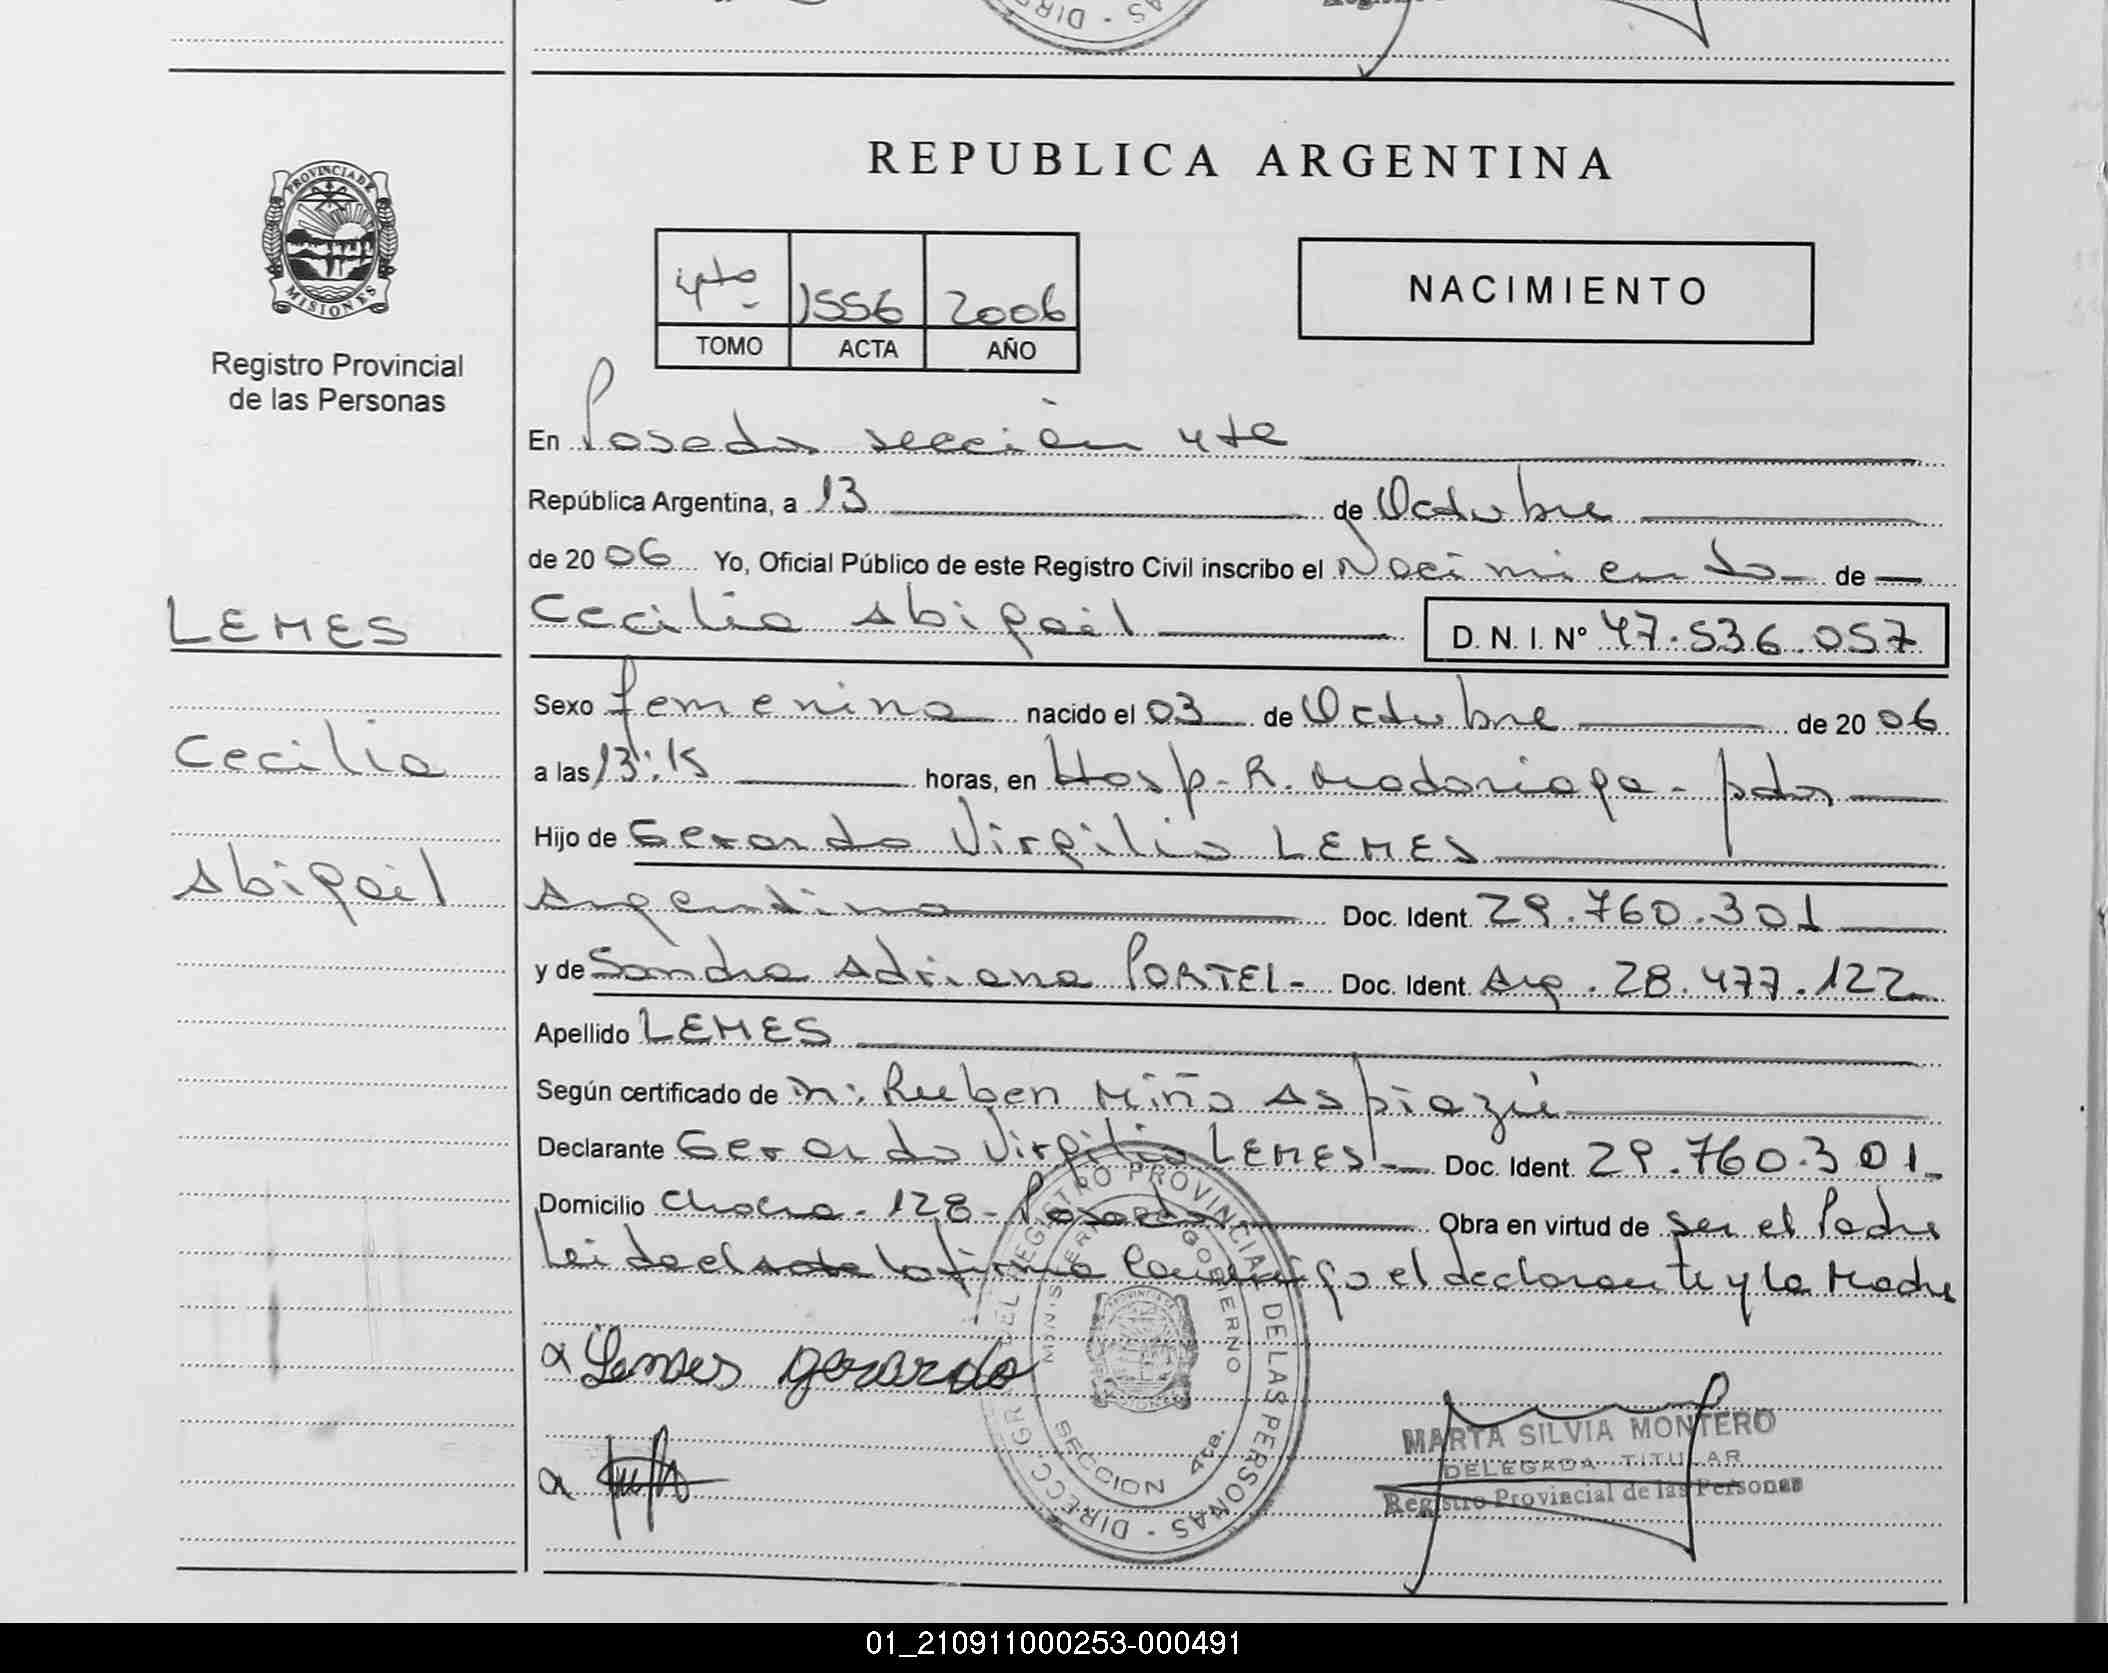 PROVINCIA DE
MISIONES
Registro Provincial
de las Personas
LEMES
Cecilia
Abigail
REPUBLICA ARGENTINA
4to 1556 2006
TOMO ACTA AÑO
NACIMIENTO
En Posadas sección 4ta
República Argentina, a 13 de Octubre
de 2006 Yo, Oficial Público de este Registro Civil inscribo el Nacimiento de
Cecilia Abigail D. N. I. N° 47.536.057
Sexo femenino nacido el 03 de Octubre de 2006
a las 13:15 horas, en Hosp. R. Madariaga - pdas
Hijo de Gerardo Virgilio LEMES
Argentino Doc. Ident. 29.760.301
y de Sandra Adriana PORTEL- Doc. Ident. Arg. 28.477.122
Apellido LEMES
Según certificado de Ruben Miño Aspiazú
Declarante Gerardo Virgilio LEMES Doc. Ident. 29.760.301
Domicilio Chacra. 128- Posadas Obra en virtud de ser el Padre
Leida el acta la firma conmigo el declarante y la Madre
Lemes gerardo
DEL REGISTRO PROVINCIAL DE LAS PERSONAS - DIRECC GR
MINISTERIO GOBIERNO
SECCION 4ta.
MARTA SILVIA MONTERO
DELEGADA TITULAR
Registro Provincial de las Personas
01_210911000253-000491